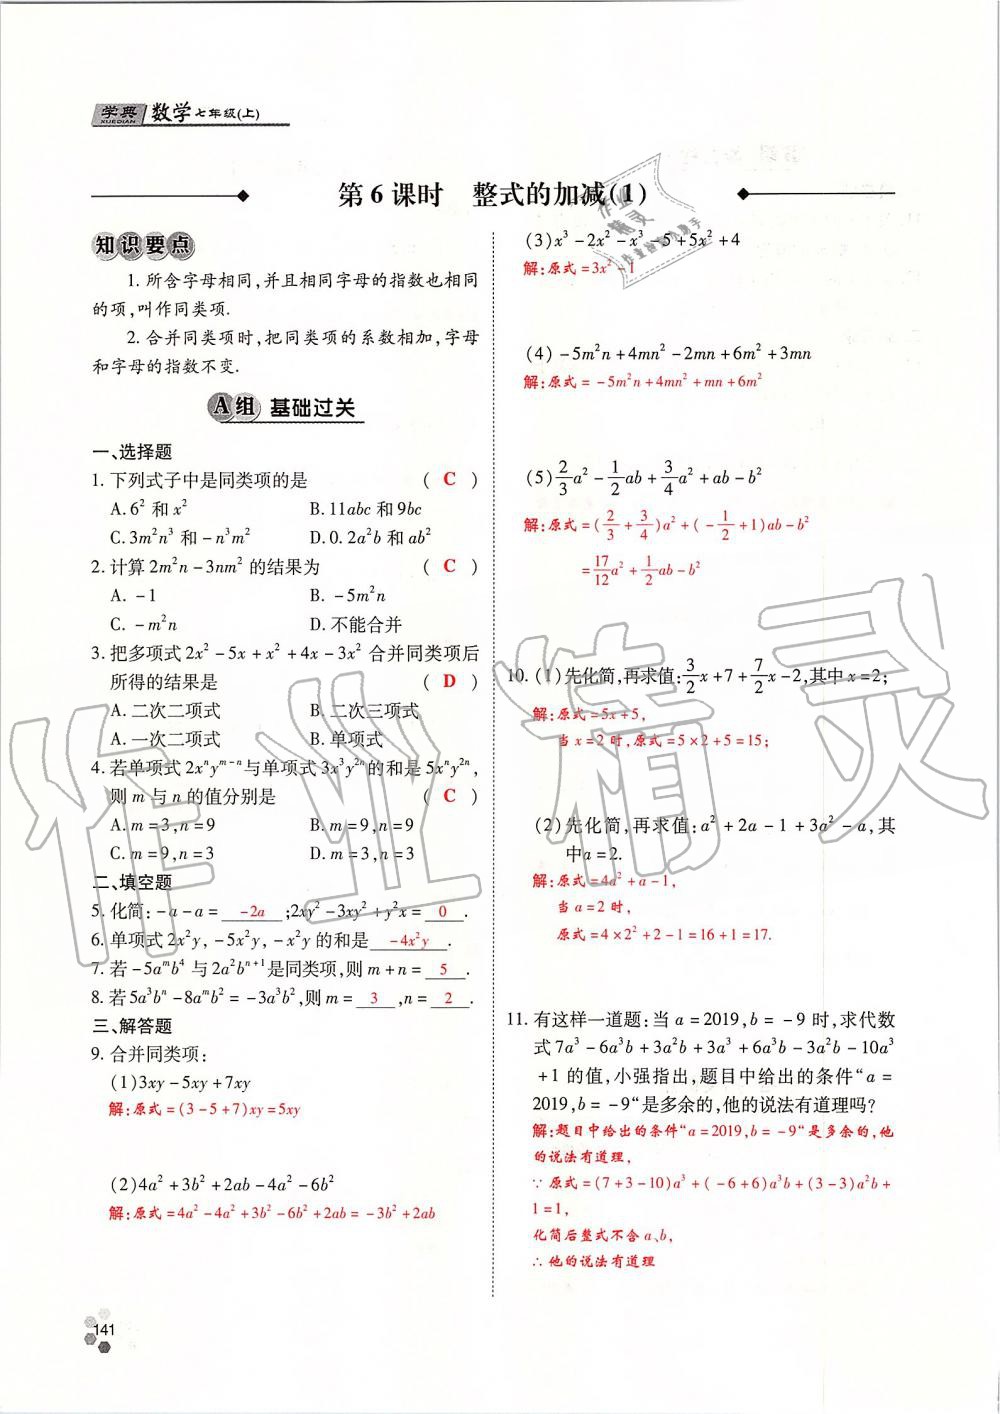 学典
XUEDIAN
数学七年级(上)
第6课时 整式的加减(1)
知识要点
1. 所含字母相同,并且相同字母的指数也相同
的项,叫作同类项.
2. 合并同类项时,把同类项的系数相加,字母
和字母的指数不变.
A组 基础过关
一、选择题
1. 下列式子中是同类项的是 ( C )
A. 6² 和 x² B. 11abc 和 9bc
C. 3m²n³ 和 -n³m² D. 0.2a²b 和 ab²
2. 计算 2m²n-3nm² 的结果为 ( C )
A. -1 B. -5m²n
C. -m²n D. 不能合并
3. 把多项式 2x²-5x+x²+4x-3x² 合并同类项后
所得的结果是 ( D )
A. 二次二项式 B. 二次三项式
A. 一次二项式 B. 单项式
4. 若单项式 2xⁿyᵐ⁻ⁿ 与单项式 3x³y²ⁿ 的和是 5xⁿy²ⁿ,
则 m 与 n 的值分别是 ( C )
A. m=3,n=9 B. m=9,n=9
C. m=9,n=3 D. m=3,n=3
二、填空题
5. 化简: -a-a= -2a ;2xy²-3xy²+y²x= 0 .
6. 单项式 2x²y, -5x²y, -x²y 的和是 -4x²y .
7. 若 -5aᵐb⁴ 与 2a²bⁿ⁺¹ 是同类项,则 m+n= 5 .
8. 若 5a³bⁿ-8aᵐb²=-3a³b²,则 m= 3 ,n= 2 .
三、解答题
9. 合并同类项:
(1)3xy-5xy+7xy
解:原式=(3-5+7)xy=5xy
(2)4a²+3b²+2ab-4a²-6b²
解:原式=4a²-4a²+3b²-6b²+2ab=-3b²+2ab
(3)x³-2x²-x³-5+5x²+4
解:原式=3x²-1
(4)-5m²n+4mn²-2mn+6m²+3mn
解:原式=-5m²n+4mn²+mn+6m²
(5)2/3a²-1/2ab+3/4a²+ab-b²
解:原式=(2/3+3/4)a²+(-1/2+1)ab-b²
=17/12a²+1/2ab-b²
10. (1)先化简,再求值:3/2x+7+7/2x-2,其中x=2;
解:原式=5x+5,
当x=2时,原式=5×2+5=15;
(2)先化简,再求值:a²+2a-1+3a²-a,其
中a=2.
解:原式=4a²+a-1,
当a=2时,
原式=4×2²+2-1=16+1=17.
11. 有这样一道题:当a=2019,b=-9时,求代数
式7a³-6a³b+3a²b+3a³+6a³b-3a²b-10a³
+1的值,小强指出,题目中给出的条件“a=
2019,b=-9“是多余的,他的说法有道理吗?
解:题目中给出的条件“a=2019,b=-9“是多余的,他
的说法有道理,
∵原式=(7+3-10)a³+(-6+6)a³b+(3-3)a²b+
1=1,
化简后整式不含a、b,
∴他的说法有道理
141
作业精灵